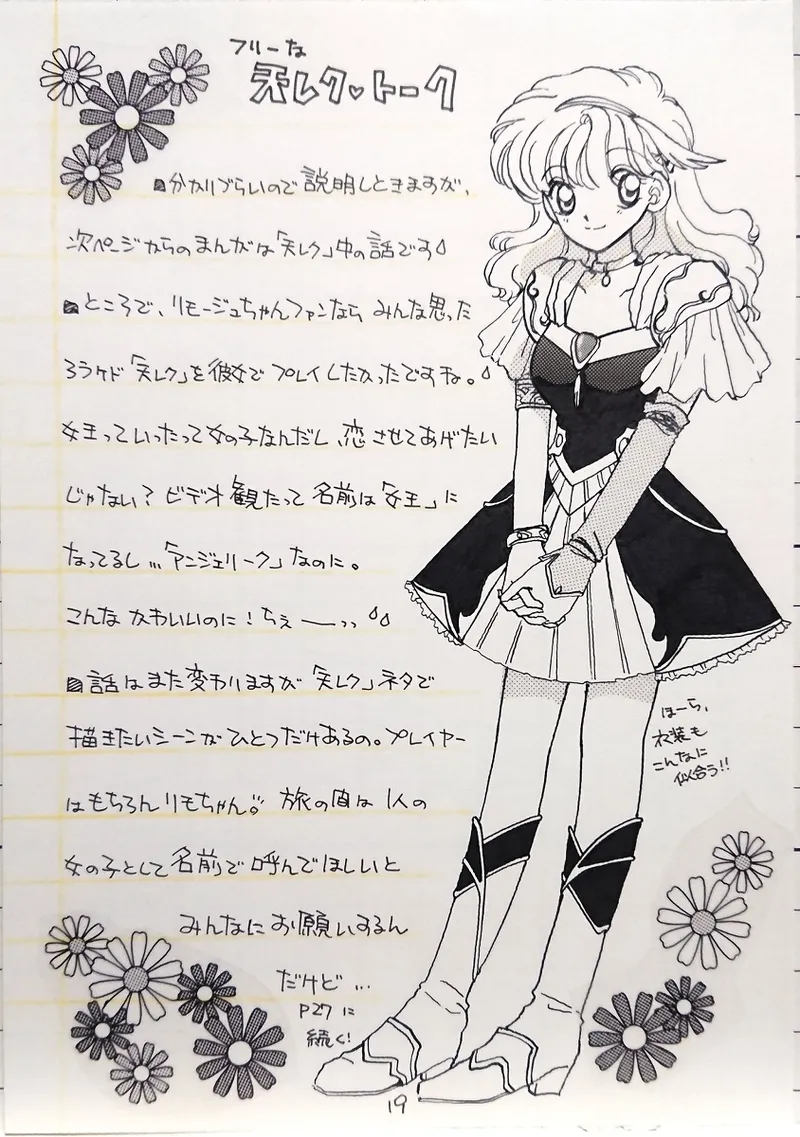 フリーな
天レク♡トーク
■分かりづらいので説明しときますが、
次ページからのまんがは「天レク」中の話です
■ところで、リモージュちゃんファンなら みんな思った
ろうケド「天レク」を彼女でプレイしたかったですね。
女王っていったって女の子なんだし、恋させてあげたい
じゃない？ビデオ観たって名前は「女王」に
なってるし…「アンジェリーク」なのに。
こんなかわいいのに！ちぇ——っっ
■話はまた変わりますが「天レク」ネタで
描きたいシーンがひとつだけあるの。プレイヤー
はもちろんリモちゃん。旅の間は1人の
女の子として名前で呼んでほしいと
みんなにお願いするん
だけど…
P27に
続く!
ほーら、
衣装も
こんなに
似合う!!
19